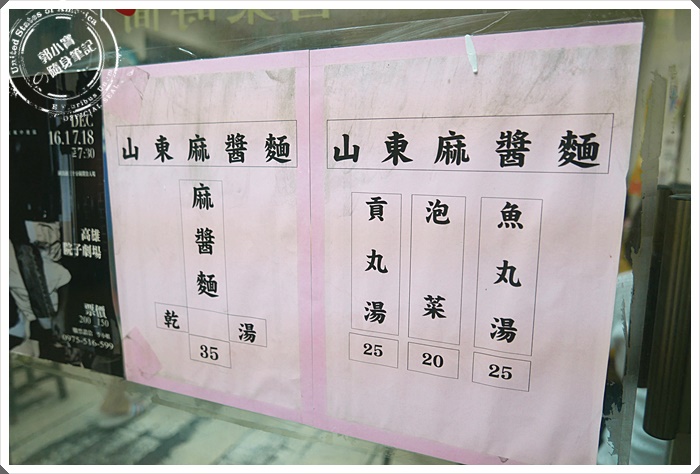 United States of America
郭小寶
の隨身筆記
16.17.18
7:30
高雄
院子劇場
票價
200 150
0975-516-599
山東麻醬麵
麻醬麵
乾 湯
35
山東麻醬麵
魚丸湯
25
泡菜
20
貢丸湯
25